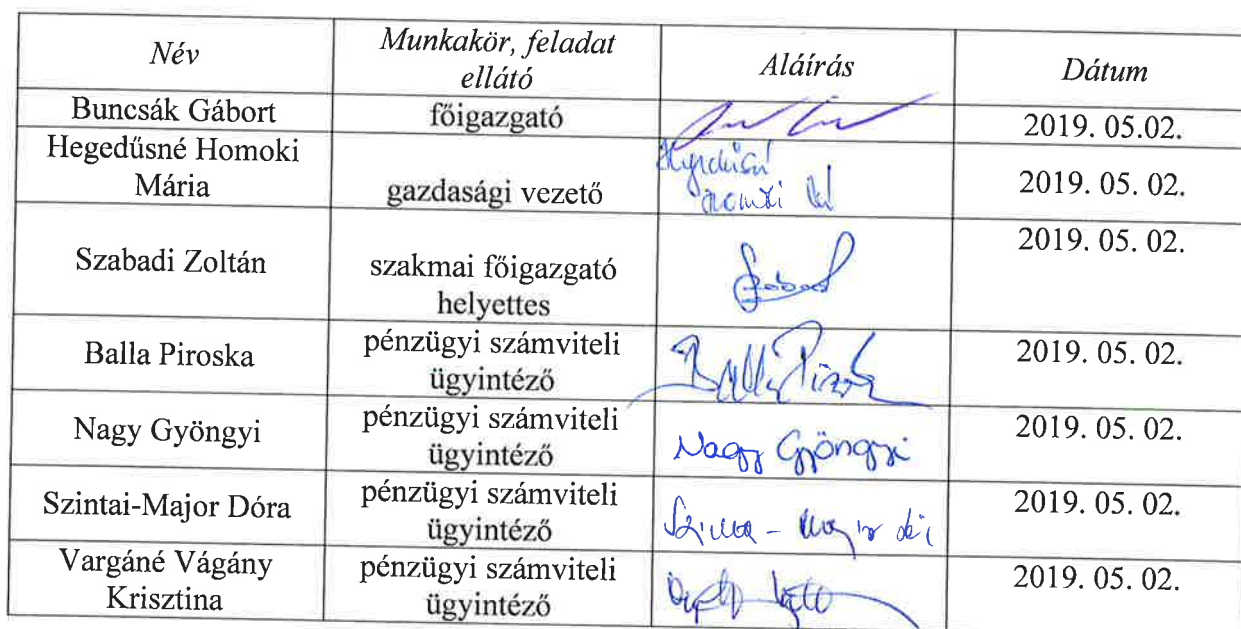 Név
Munkakör, feladat
ellátó
Aláírás
Dátum
Buncsák Gábort
főigazgató
2019. 05.02.
Hegedűsné Homoki
Mária
gazdasági vezető
2019. 05. 02.
Szabadi Zoltán
szakmai főigazgató
helyettes
2019. 05. 02.
Balla Piroska
pénzügyi számviteli
ügyintéző
Balla Piroska
2019. 05. 02.
Nagy Gyöngyi
pénzügyi számviteli
ügyintéző
Nagy Gyöngyi
2019. 05. 02.
Szintai-Major Dóra
pénzügyi számviteli
ügyintéző
2019. 05. 02.
Vargáné Vágány
Krisztina
pénzügyi számviteli
ügyintéző
2019. 05. 02.